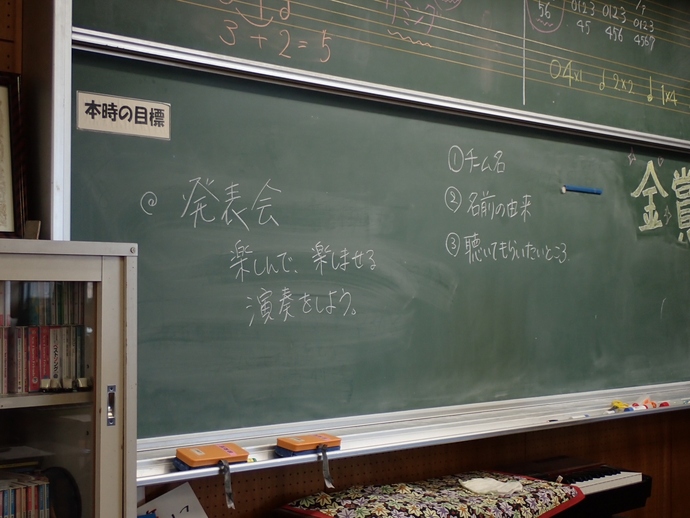 3+2=5
56
0123 0123 0123
45 456 4567
4×1 2×2 1×4
本時の目標
発表会
楽しんで、楽しませる
演奏をしよう。
①チーム名
②名前の由来
③聴いてもらいたいところ
金賞